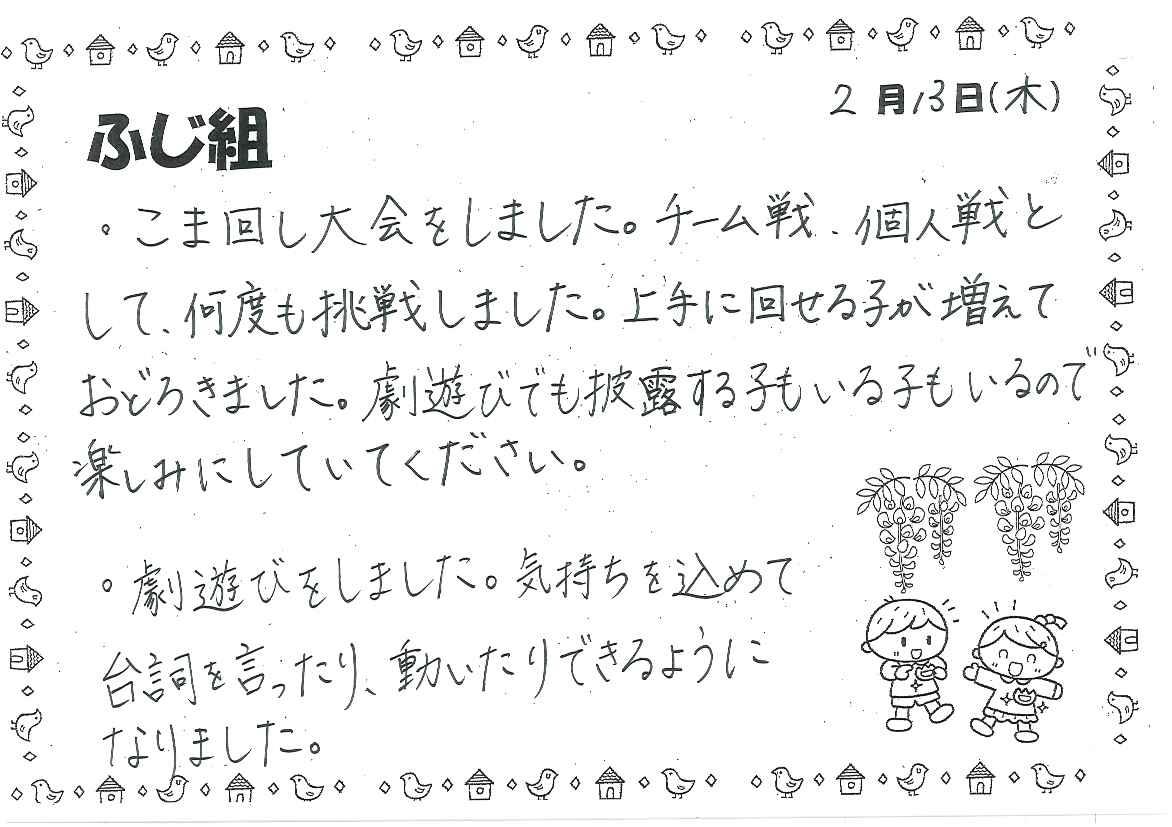 2月13日(木)
ふじ組
。こま回し大会をしました。チーム戦、個人戦と
して、何度も挑戦しました。上手に回せる子が増えて
おどろきました。劇遊びでも披露する子もいる子もいるので
楽しみにしていてください。
。劇遊びをしました。気持ちを込めて
台詞を言ったり、動いたりできるように
なりました。